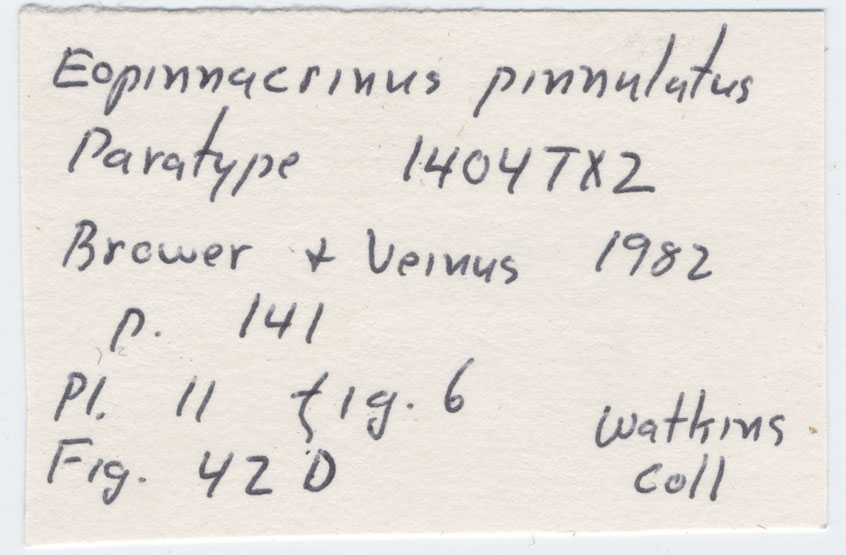 Eopinnacrinus pinnulatus
Paratype 1404TX2
Brower + Veinus 1982
p. 141
Pl. 11 fig. 6
Fig. 42 D
Watkins
Coll